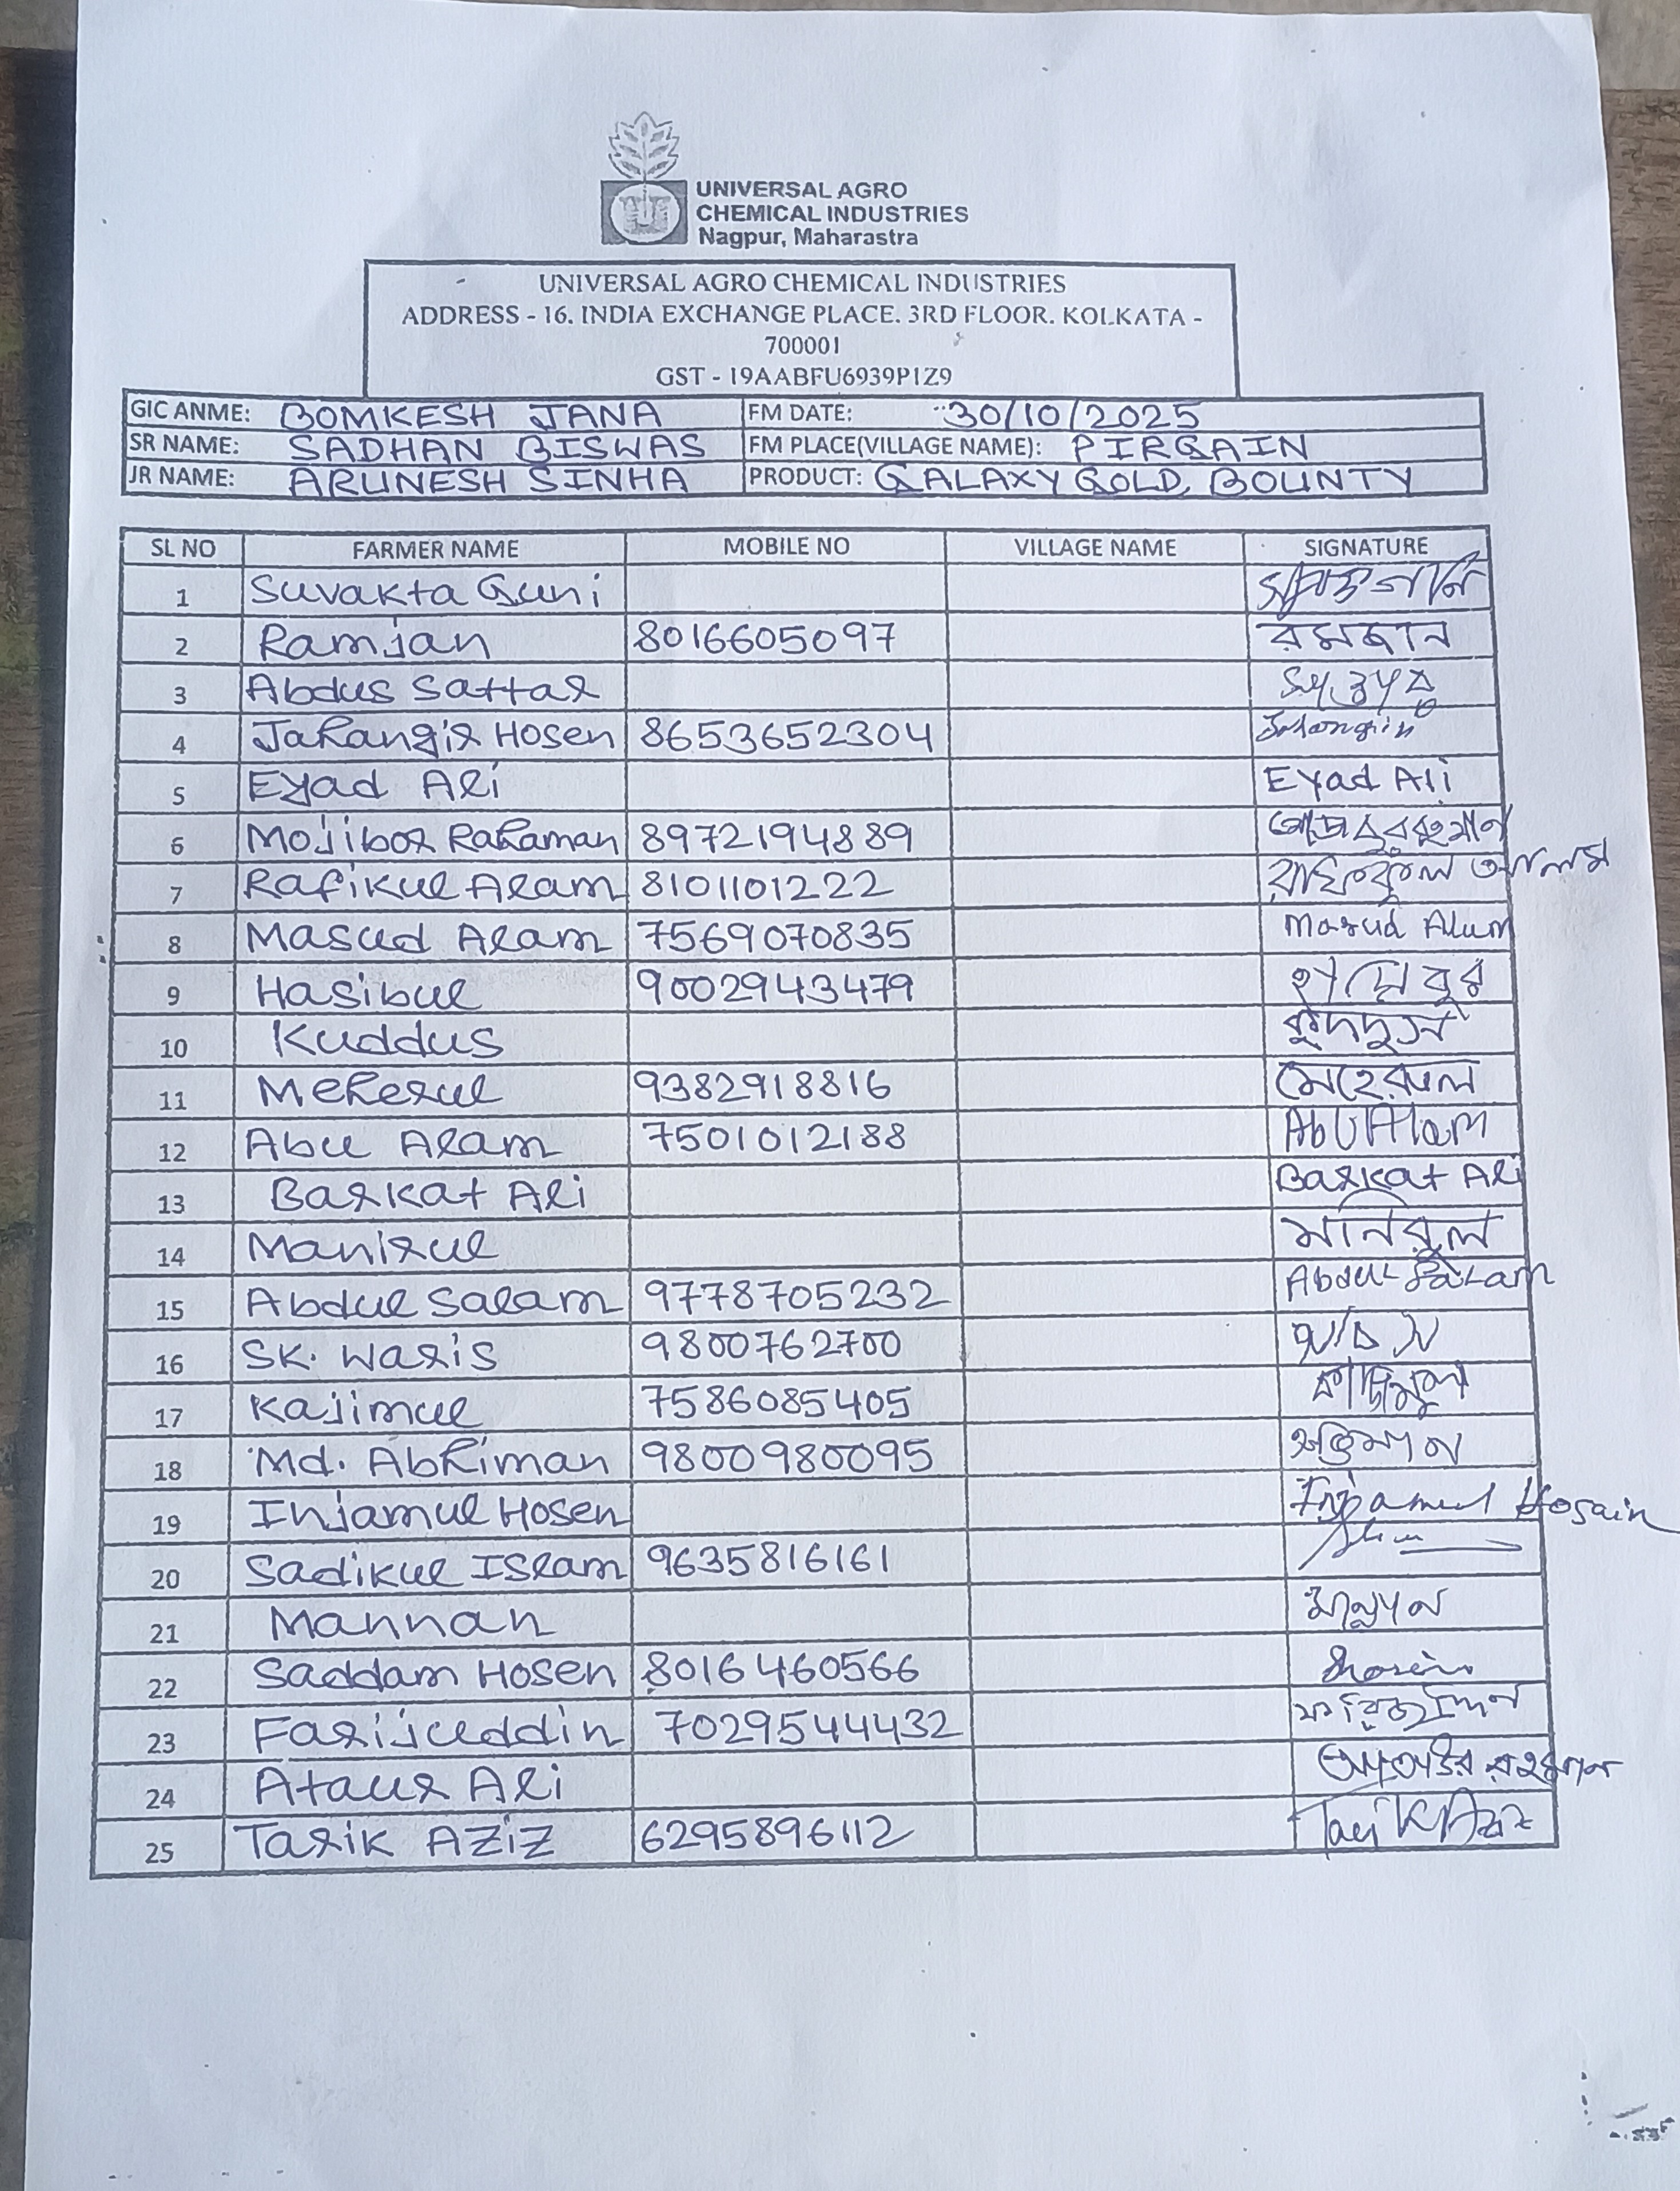 UNIVERSAL AGRO
CHEMICAL INDUSTRIES
Nagpur, Maharastra
UNIVERSAL AGRO CHEMICAL INDUSTRIES
ADDRESS - 16. INDIA EXCHANGE PLACE. 3RD FLOOR. KOLKATA -
700001
GST - 19AABFU6939P1Z9
GIC ANME: BOMKESH JANA FM DATE: 30/10/2025
SR NAME: SADHAN BISWAS FM PLACE(VILLAGE NAME): PIRGAIN
JR NAME: ARUNESH SINHA PRODUCT: GALAXY GOLD, BOUNTY
SL NO FARMER NAME MOBILE NO VILLAGE NAME SIGNATURE
1 Suvakta Guni
2 Ramjan 8016605097 রমজান
3 Abdus Sattar
4 Jahangir Hosen 8653652304
5 Eyad Ali Eyad Ali
6 Mojibor Rahaman 8972194889
7 Rafikul Alam 8101101222 রফিকুল আলম
8 Masud Alam 7569070835 Masud Alam
9 Hasibul 9002943479
10 Kuddus কুদদুস
11 Meherul 9382918816 মেহেরুল
12 Abu Alam 7501012188 Abu Alam
13 Barkat Ali Barkat Ali
14 Manirul মনিরুল
15 Abdul Salam 9778705232 Abdul Salam
16 SK. Waris 9800762700
17 Kajimul 7586085405 কাজিমুল
18 Md. Abhiman 9800980095
19 Injamul Hosen Injamul Hosain
20 Sadikul Islam 9635816161
21 Mannan মান্নান
22 Saddam Hosen 8016460566
23 Farijuddin 7029544432
24 Ataur Ali
25 Tarik AZiZ 6295896112 Tarik Aziz